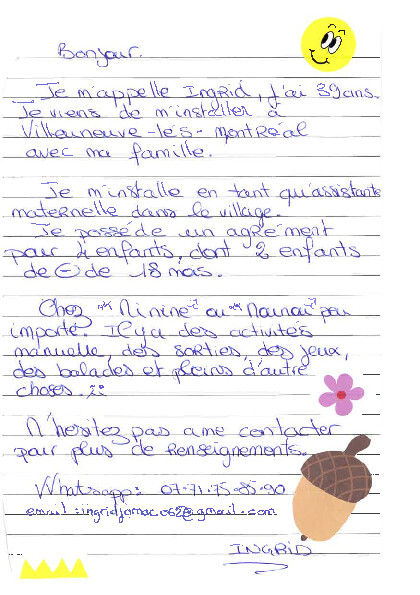 Bonjour.
Je m'appelle Ingrid, j'ai 39 ans.
Je viens de m'installer à
Villeuneuve-lès-Montréal
avec ma famille.
Je m'installe en tant qu'assistante
maternelle dans le village.
Je possède un agrément
pour 4 enfants, dont 2 enfants
de ⊖ de 18 mois.
Chez "Ninine" ou "Nounou" peu
importe. Il y a des activités
manuelle, des sorties, des jeux,
des balades et pleins d'autre
choses.
N'hésitez pas a me contacter
pour plus de renseignements.
Whatsapp: 07-71-75-85-90
email:
INGRID